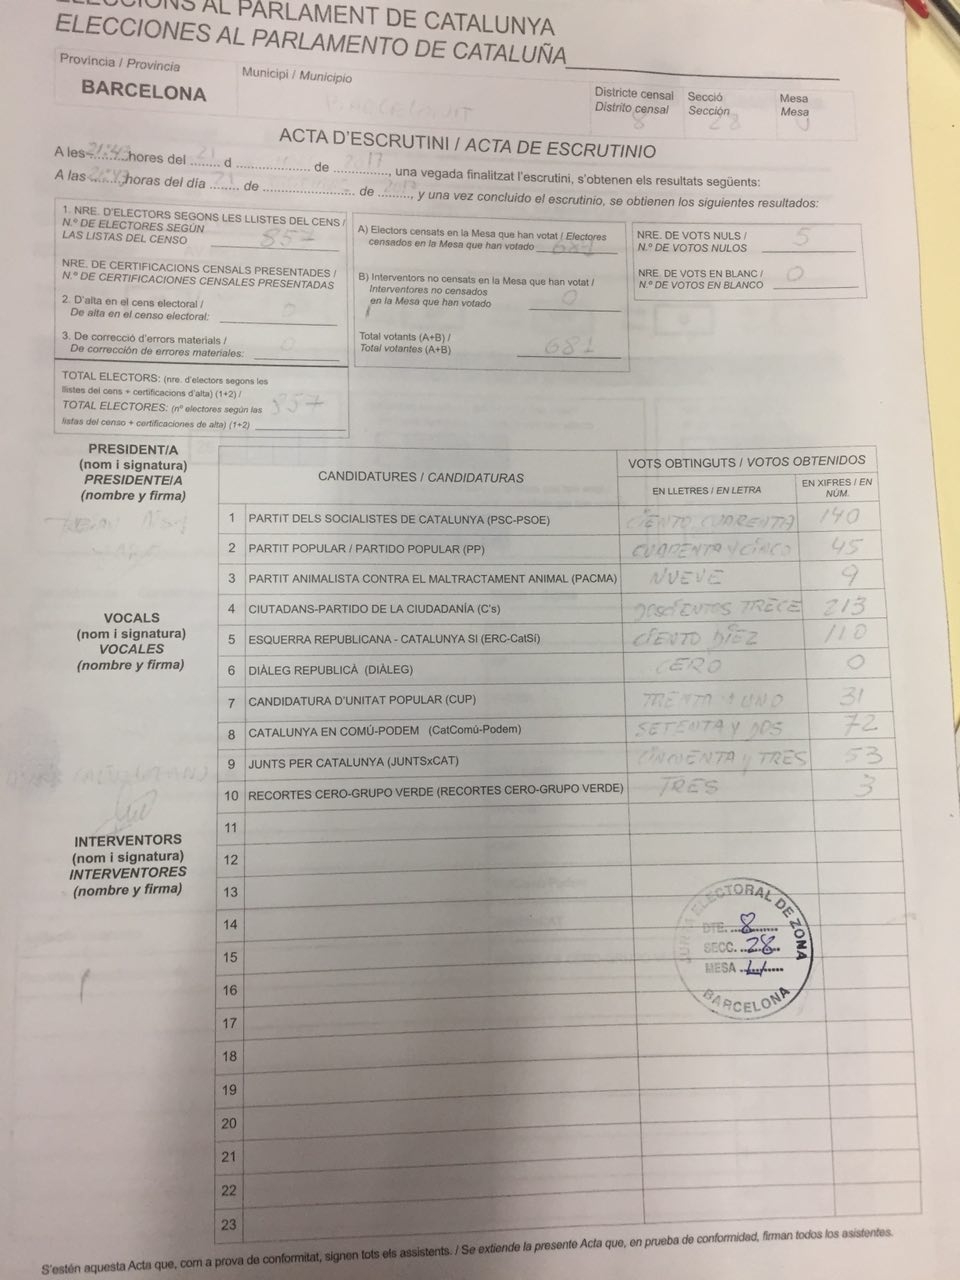 ELECCIONS AL PARLAMENT DE CATALUNYA
ELECCIONES AL PARLAMENTO DE CATALUÑA
Provincia / Provincia
BARCELONA
Municipi / Municipio
BARCELONA
Districte censal
Distrito censal
8
Secció
Sección
28
Mesa
Mesa
U
ACTA D'ESCRUTINI / ACTA DE ESCRUTINIO
A les 21:43 hores del 21 d ........ de 2017, una vegada finalitzat l'escrutini, s'obtenen els resultats següents:
A las 21:43 horas del día 21 de ........ de 2017, y una vez concluido el escrutinio, se obtienen los siguientes resultados:
1. NRE. D'ELECTORS SEGONS LES LLISTES DEL CENS /
N.º DE ELECTORES SEGÚN
LAS LISTAS DEL CENSO 857
NRE. DE CERTIFICACIONS CENSALS PRESENTADES /
N.º DE CERTIFICACIONES CENSALES PRESENTADAS
2. D'alta en el cens electoral /
De alta en el censo electoral: 0
3. De correcció d'errors materials /
De corrección de errores materiales: 0
TOTAL ELECTORS: (nre. d'electors segons les
llistes del cens + certificacions d'alta) (1+2) /
TOTAL ELECTORES: (nº electores según las
listas del censo + certificaciones de alta) (1+2) 857
A) Electors censats en la Mesa que han votat / Electores
censados en la Mesa que han votado 681
B) Interventors no censats en la Mesa que han votat /
Interventores no censados
en la Mesa que han votado 0
Total votants (A+B) /
Total votantes (A+B) 681
NRE. DE VOTS NULS /
N.º DE VOTOS NULOS 5
NRE. DE VOTS EN BLANC /
N.º DE VOTOS EN BLANCO 0
PRESIDENT/A
(nom i signatura)
PRESIDENTE/A
(nombre y firma)
VOCALS
(nom i signatura)
VOCALES
(nombre y firma)
INTERVENTORS
(nom i signatura)
INTERVENTORES
(nombre y firma)
CANDIDATURES / CANDIDATURAS
VOTS OBTINGUTS / VOTOS OBTENIDOS
EN LLETRES / EN LETRA
EN XIFRES / EN NÚM.
1 PARTIT DELS SOCIALISTES DE CATALUNYA (PSC-PSOE) CIENTO CUARENTA 140
2 PARTIT POPULAR / PARTIDO POPULAR (PP) CUARENTA Y CINCO 45
3 PARTIT ANIMALISTA CONTRA EL MALTRACTAMENT ANIMAL (PACMA) NUEVE 9
4 CIUTADANS-PARTIDO DE LA CIUDADANÍA (C's) DOSCIENTOS TRECE 213
5 ESQUERRA REPUBLICANA - CATALUNYA SI (ERC-CatSí) CIENTO DIEZ 110
6 DIÀLEG REPUBLICÀ (DIÀLEG) CERO 0
7 CANDIDATURA D'UNITAT POPULAR (CUP) TRENTA Y UNO 31
8 CATALUNYA EN COMÚ-PODEM (CatComú-Podem) SETENTA Y DOS 72
9 JUNTS PER CATALUNYA (JUNTSxCAT) CINCUENTA Y TRES 53
10 RECORTES CERO-GRUPO VERDE (RECORTES CERO-GRUPO VERDE) TRES 3
11
12
13
14
15
16
17
18
19
20
21
22
23
JUNTA ELECTORAL DE ZONA
DTE. 8
SECC. 28
MESA U
BARCELONA
S'estén aquesta Acta que, com a prova de conformitat, signen tots els assistents. / Se extiende la presente Acta que, en prueba de conformidad, firman todos los asistentes.